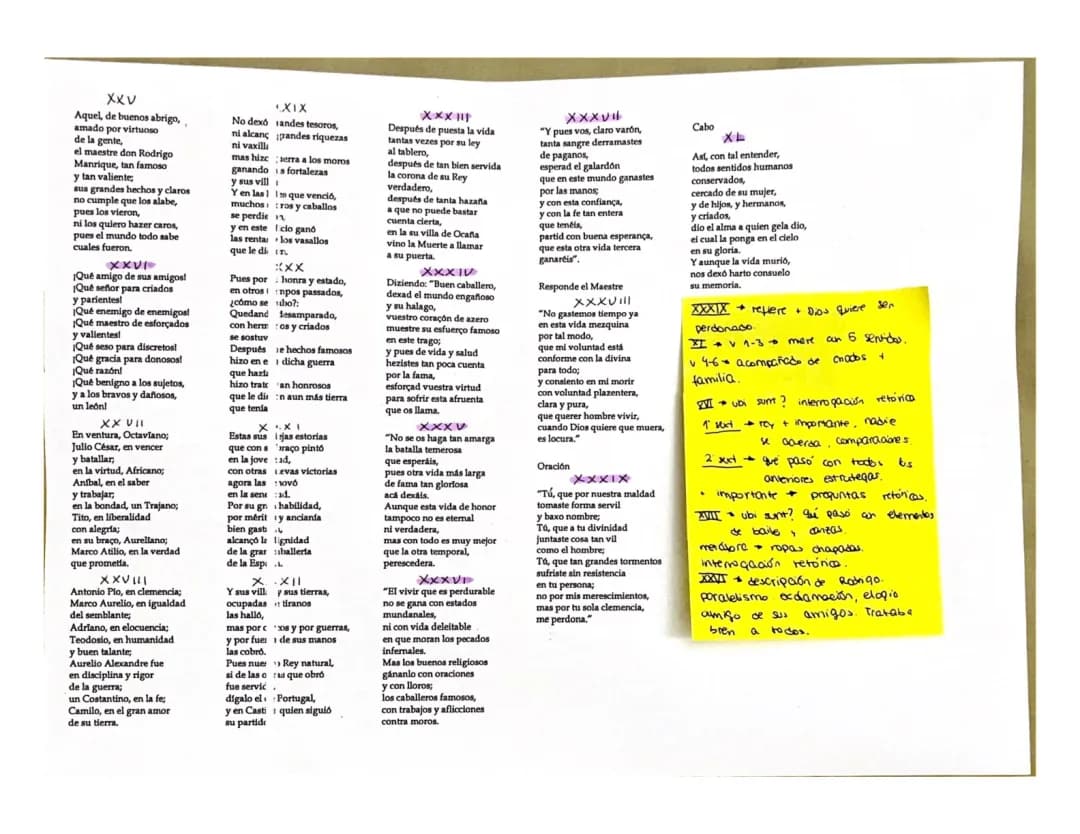 XXV
Aquel, de buenos abrigo,
amado por virtuoso
de la gente,
el maestre don Rodrigo
Manrique, tan famoso
y tan valiente;
sus grandes hechos y claros
no cumple que los alabe,
pues los vieron,
ni los quiero hazer caros,
pues el mundo todo sabe
cuales fueron.
XXVI
¡Qué amigo de sus amigos!
¡Qué señor para criados
y parientes!
¡Qué enemigo de enemigos!
¡Qué maestro de esforçados
y valientes!
¡Qué seso para discretos!
¡Qué gracia para donosos!
¡Qué razón!
¡Qué benigno a los sujetos,
y a los bravos y dañosos,
un león!
XXVII
En ventura, Octaviano;
Julio César, en vencer
y batallar;
en la virtud, Africano;
Aníbal, en el saber
y trabajar;
en la bondad, un Trajano;
Tito, en liberalidad
con alegría;
en su braço, Aureliano;
Marco Atilio, en la verdad
que prometía.
XXVIII
Antonio Pío, en clemencia;
Marco Aurelio, en igualdad
del semblante;
Adriano, en elocuencia;
Teodosio, en humanidad
y buen talante;
Aurelio Alexandre fue
en disciplina y rigor
de la guerra;
un Costantino, en la fe;
Camilo, en el gran amor
de su tierra.
XIX
No dexó andes tesoros,
ni alcanç grandes riquezas
ni vaxill
mas hizo ierra a los moros
ganando s fortalezas
y sus vill
Y en las l que venció,
muchos ros y caballos
se perdie
y en este cio ganó
las renta los vasallos
que le di
XX
Pues por honra y estado,
en otros mpos pasados,
¿cómo se ubo?:
Quedand desamparado,
con herm os y criados
se sostuv
Después e hechos famosos
hizo en e dicha guerra
que hazía
hizo trat an honrosos
que le di n aun más tierra
que tenía
X XI
Estas sus jas estorias
que con s raço pintó
en la jove ad,
con otras evas victorias
agora las ovó
en la sene ad.
Por su gr habilidad,
por mérit y ancianía
bien gast
alcançó la lignidad
de la gran aballería
de la Esp
X XII
Y sus vill y sus tierras,
ocupadas tiranos
las halló,
mas por c os y por guerras,
y por fuer de sus manos
las cobró.
Pues nues Rey natural,
si de las o ras que obró
fue servid
dígalo el Portugal,
y en Casti quien siguió
su partido
XXXIII
Después de puesta la vida
tantas vezes por su ley
al tablero,
después de tan bien servida
la corona de su Rey
verdadero,
después de tanta hazaña
a que no puede bastar
cuenta cierta,
en la su villa de Ocaña
vino la Muerte a llamar
a su puerta.
XXXIV
Diziendo: "Buen caballero,
dexad el mundo engañoso
y su halago,
vuestro coraçón de azero
muestre su esfuerço famoso
en este trago;
y pues de vida y salud
hezistes tan poca cuenta
por la fama,
esforçad vuestra virtud
para sofrir esta afruenta
que os llama.
XXXV
"No se os haga tan amarga
la batalla temerosa
que esperáis,
pues otra vida más larga
de fama tan gloriosa
acá dexáis.
Aunque esta vida de honor
tampoco no es eternal
ni verdadera,
mas con todo es muy mejor
que la otra temporal,
perescedera.
XXXVI
"El vivir que es perdurable
no se gana con estados
mundanales,
ni con vida deleitable
en que moran los pecados
infernales.
Mas los buenos religiosos
gánanlo con oraciones
y con lloros;
los caballeros famosos,
con trabajos y aflicciones
contra moros.
XXXVII
"Y pues vos, claro varón,
tanta sangre derramastes
de paganos,
esperad el galardón
que en este mundo ganastes
por las manos;
y con esta confiança,
y con la fe tan entera
que tenéis,
partid con buena esperança,
que esta otra vida tercera
ganaréis".
Responde el Maestre
XXXVIII
"No gastemos tiempo ya
en esta vida mezquina
por tal modo,
que mi voluntad está
conforme con la divina
para todo;
y consiento en mi morir
con voluntad plazentera,
clara y pura,
que querer hombre vivir,
cuando Dios quiere que muera,
es locura."
Oración
XXXIX
"Tú, que por nuestra maldad
tomaste forma servil
y baxo nombre;
Tú, que a tu divinidad
juntaste cosa tan vil
como el hombre;
Tú, que tan grandes tormentos
sufriste sin resistencia
en tu persona;
no por mis merescimientos,
mas por tu sola clemencia,
me perdona."
Cabo
XL
Así, con tal entender,
todos sentidos humanos
conservados,
cercado de su mujer,
y de hijos, y hermanos,
y criados,
dio el alma a quien gela dio,
el cual la ponga en el cielo
en su gloria.
Y aunque la vida murió,
nos dexó harto consuelo
su memoria.
XXXIX → refiere + Dios quiere ser
perdonado.
XL → v 1-3 → mere con 5 sentidos.
v 4-6 → acompañado de criados +
familia.
XVI → ubi sunt? interrogación retórica
1ª sext → rey + importante, nadie
se acuerda, comparaciones.
2 sext → qué pasó con todos los
anteriores estrategas.
+ importante → preguntas retóricas.
XVII → ubi sunt? qué pasó con elementos
de baile y danzas.
→ ropas chapadas.
interrogación retórica.
XXVI → descripción de Rodrigo.
paralelismo exclamación, elogio
amigo de sus amigos. Trataba
bien a todos.